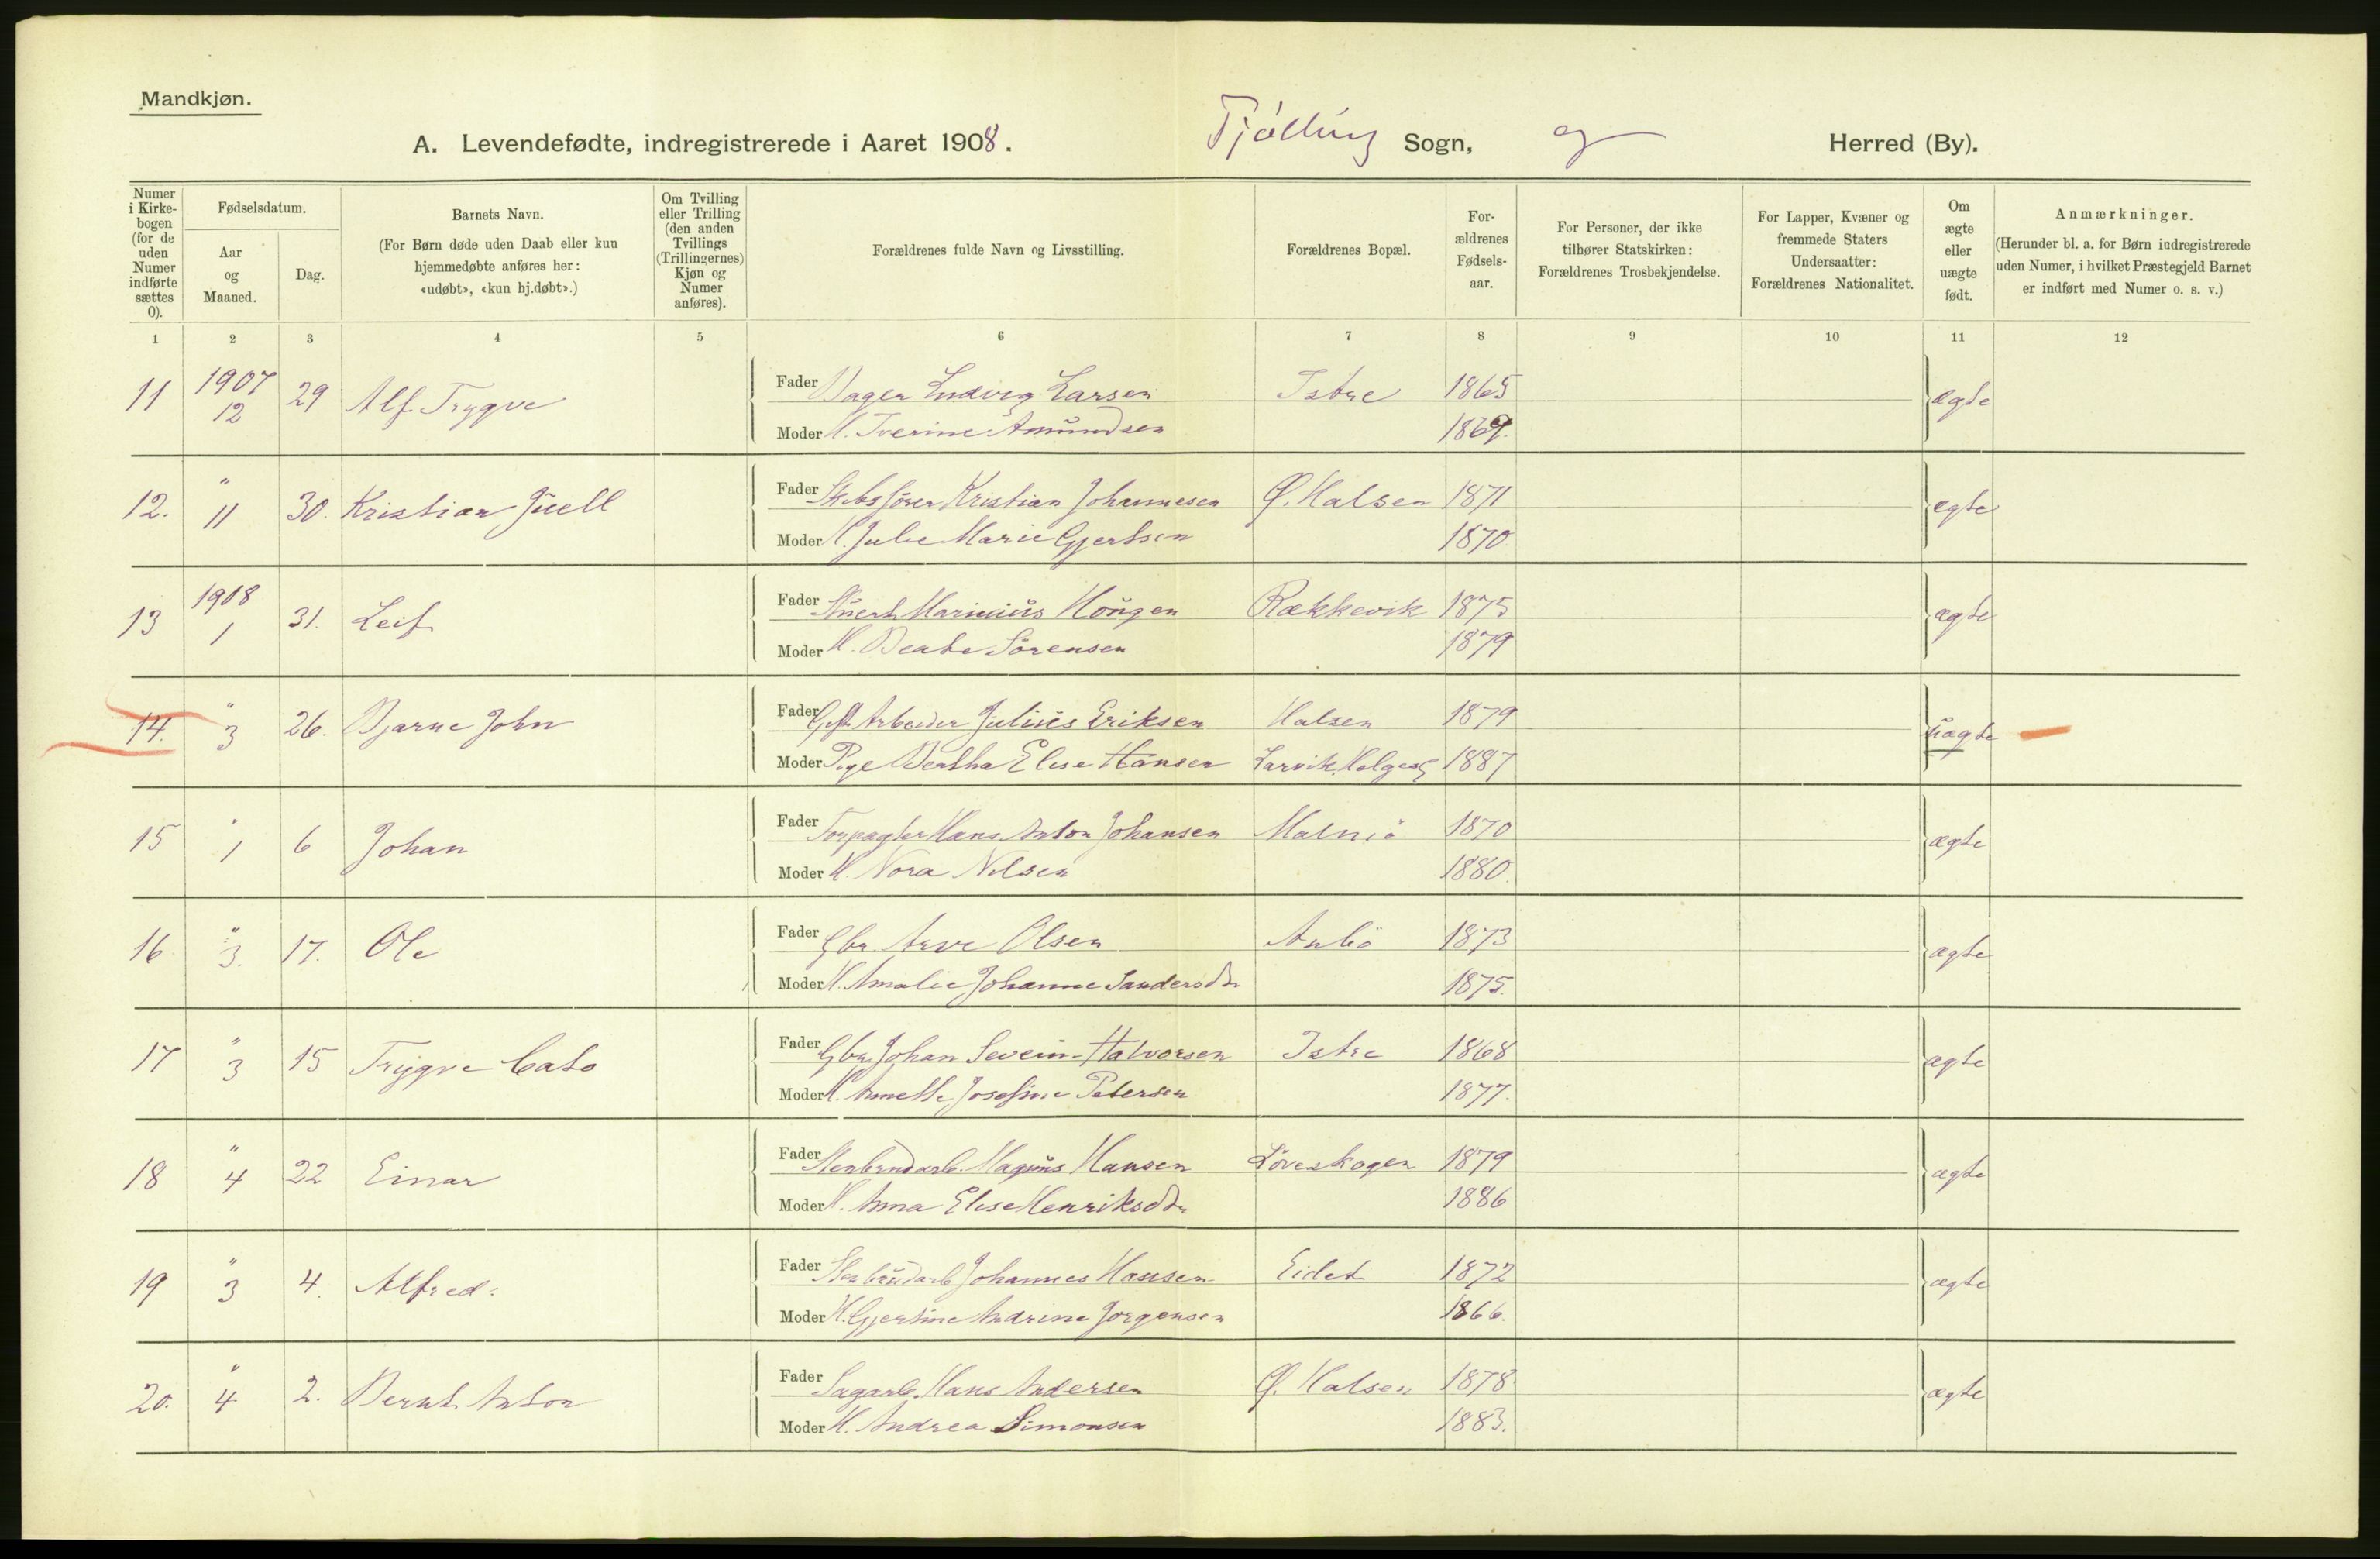 Mandkjøn.
A. Levendefødte, indregistrerede i Aaret 1908. Tjølling Sogn, og Herred (By).
Numer i Kirkebogen (for de uden Numer indførte sættes 0).
Fødselsdatum.
Aar og Maaned.
Dag.
Barnets Navn.
(For Børn døde uden Daab eller kun hjemmedøbte anføres her: «udøbt», «kun hj.døbt».)
Om Tvilling eller Trilling (den anden Tvillings (Trillingernes) Kjøn og Numer anføres).
Forældrenes fulde Navn og Livsstilling.
Forældrenes Bopæl.
Forældrenes Fødselsaar.
For Personer, der ikke tilhører Statskirken: Forældrenes Trosbekjendelse.
For Lapper, Kvæner og fremmede Staters Undersaatter: Forældrenes Nationalitet.
Om ægte eller uægte født.
Anmærkninger.
(Herunder bl. a. for Børn indregistrerede uden Numer, i hvilket Præstegjeld Barnet er indført med Numer o. s. v.)
1 2 3 4 5 6 7 8 9 10 11 12
11 1907 12 29 Alf Trygve Fader Bager Ludvig Larsen Istre 1865 ægte
Moder H. Iverine Amundsen 1869.
12. " 11 30. Kristian Juell Fader Skibsfører Kristian Johannesen Ø. Halsen 1871 ægte
Moder H. Julie Marie Gjertsen 1870
13 1908 1 31. Leif Fader Marinius Hougen Rækkevik 1875 ægte
Moder H. Beate Sörensen 1879
14. " 3 26. Bjarne John Fader Gift Arbeider Julius Eriksen Halsen 1879 uægte
Moder Pige Bertha Elise Hansen Larvik, 1887
15 " 1 6 Johan Fader Forpagter Hans Anton Johansen Malmö 1870 ægte
Moder H. Nora Nilsen 1880.
16 " 3. 17. Ole Fader Gbr. Arve Olsen Aubö 1873 ægte
Moder H. Amalie Johanne Sandersdtr 1875.
17 " 3 15 Trygve Cato Fader Gbr. Johan Severin Halvorsen Istre 1868 ægte
Moder H. Annette Josefine Petersen 1877.
18 " 4 22 Einar Fader Stenbrudarb. Magnus Hansen Löveskogen 1879 ægte
Moder H. Anna Elise Henriksdtr 1886
19 " 3 4. Alfred. Fader Stenbrudarb Johannes Hansen Eidet 1872 ægte
Moder H. Gjertine Andrine Jörgensen 1866.
20. " 4 2. Bernt Anton Fader Sagarb. Hans Andersen Ø. Halsen 1878 ægte
Moder H. Andrea Simonsen 1883.